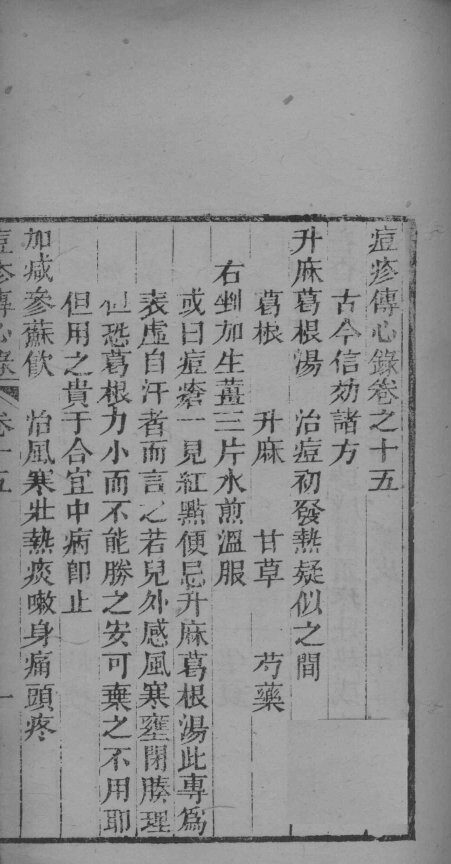 痘疹傳心錄卷之十五
古今信効諸方
升麻葛根湯　治痘初發熱疑似之間
葛根　升麻　甘草　芍藥
右剉加生薑三片水煎溫服
或曰痘瘡一見紅點便忌升麻葛根湯此專爲
表虛自汗者而言之若兒外感風寒壅閉腠理
但恐葛根力小而不能勝之安可棄之不用耶
但用之貴于合宜中病卽止
加减參蘇飮　治風寒壯熱痰嗽身痛頭疼
痘疹傳心錄　卷十五　一